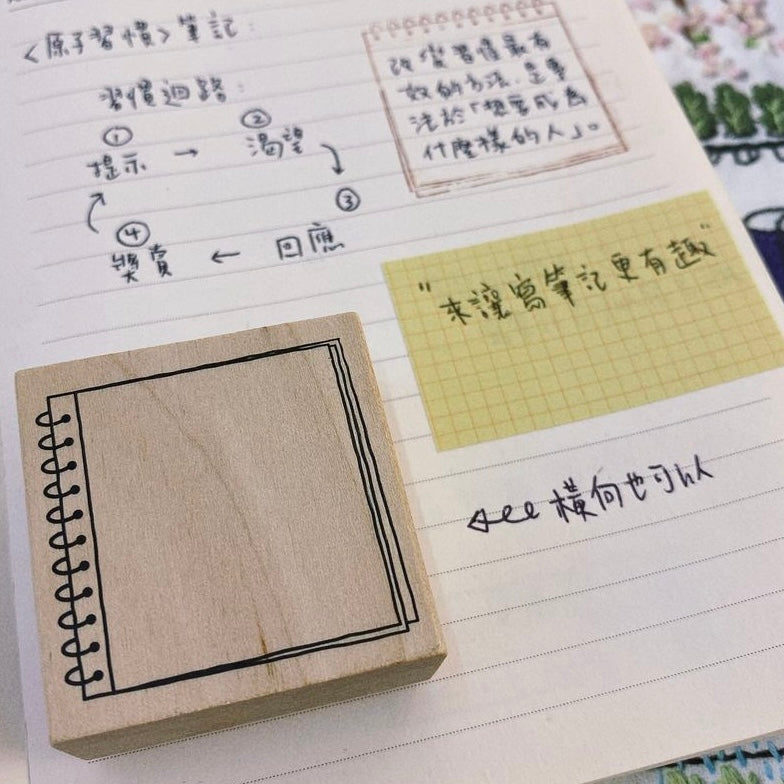 <原子習慣> 筆記:
習慣迴路:
① ②
提示 → 渴望
③
④
獎賞 ← 回應
改變習慣最有
效的方法,是專
注於「想要成為
什麼樣的人」。
"來讓寫筆記更有趣"
橫向也可以